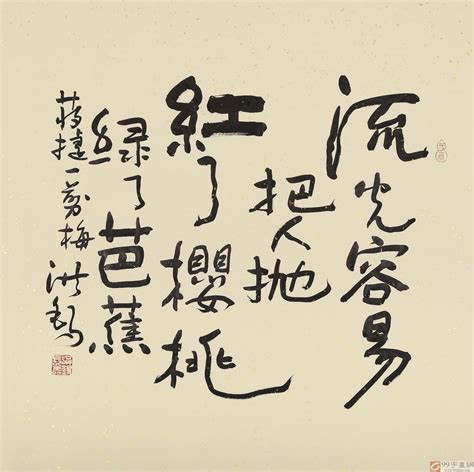 流光容易
把人抛
紅了櫻桃
绿了芭蕉
蒋捷一剪梅 洪